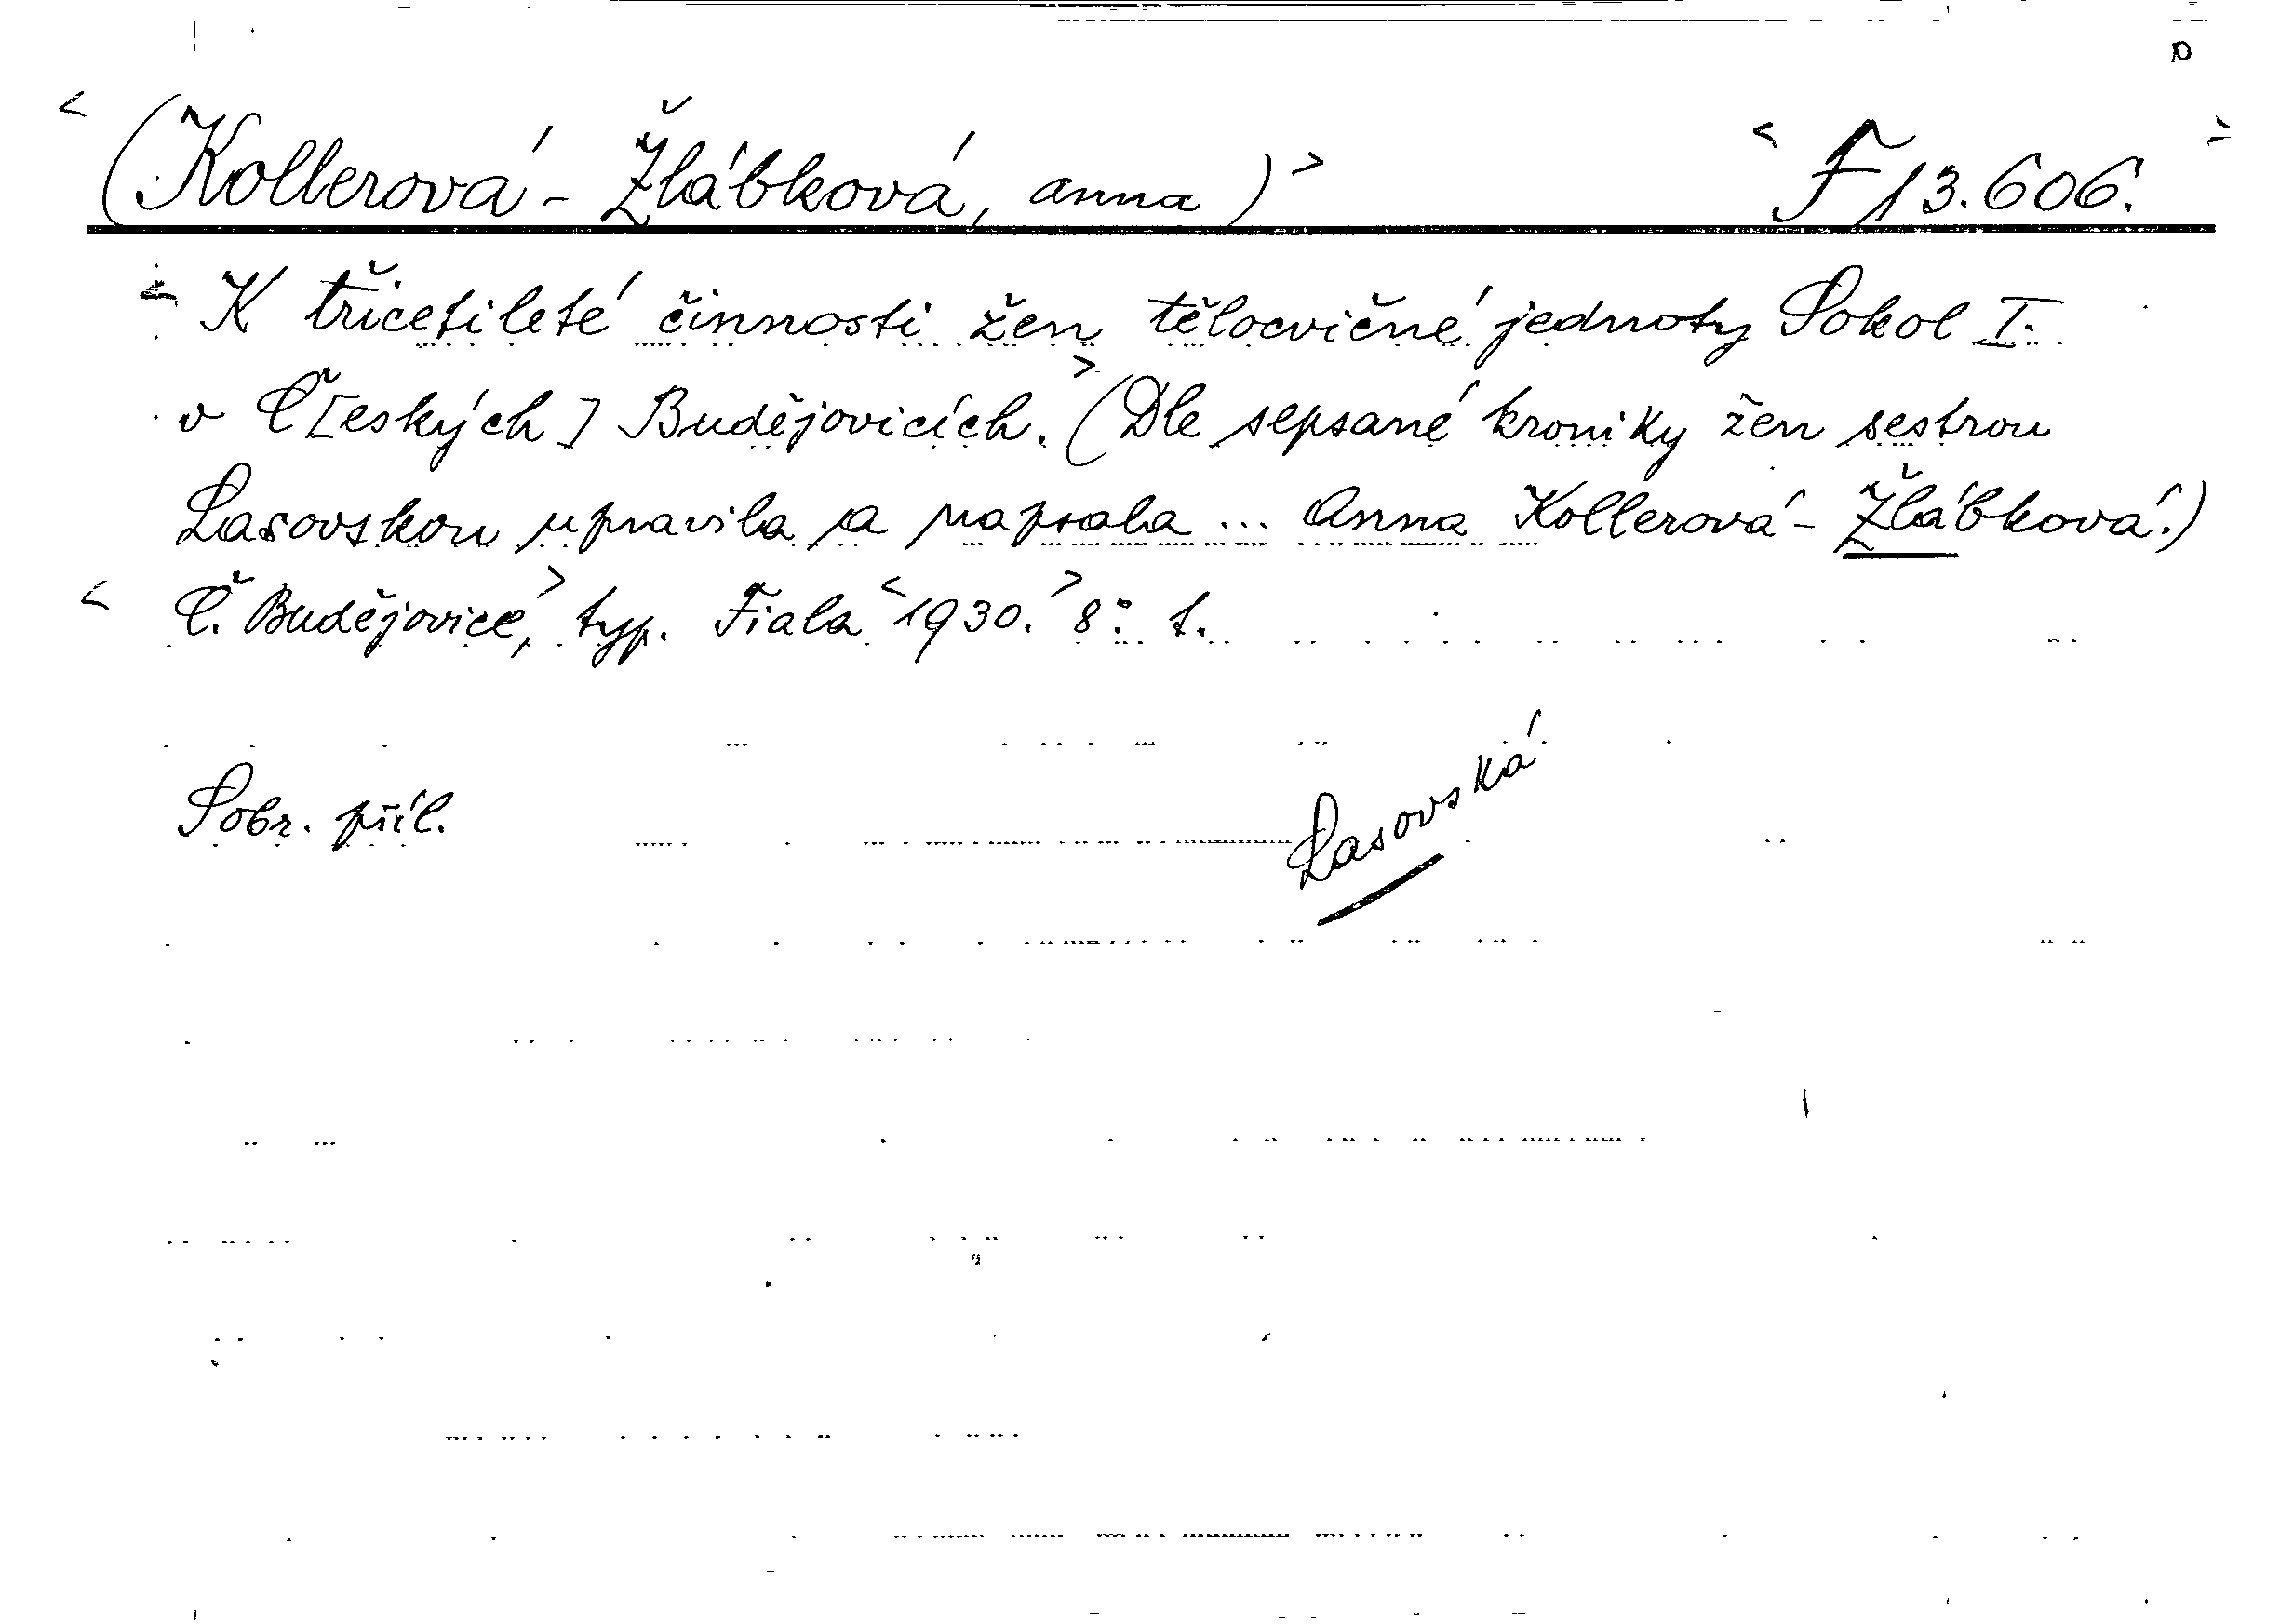 <(Kollerová-Žlábková, Anna)> <F 13.606.>
<K třicetileté činnosti žen tělocvičné jednoty Sokol I.
v Č[eských] Budějovicích.> (Dle sepsané kroniky žen sestrou
Lasovskou upravila a napsala ... Anna Kollerová-Žlábková.)
<Č. Budějovice,> typ. Fiala <1930.> 8°. t.
Sobr. příl.
Lasovská